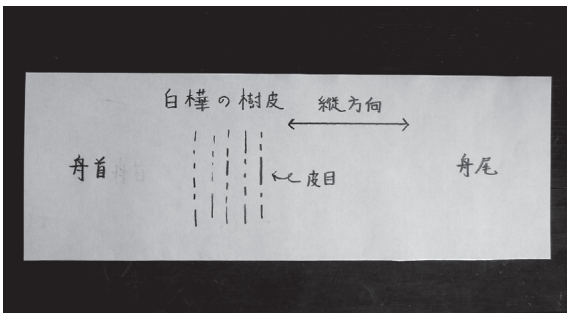 白樺の樹皮
縦方向
舟首
皮目
舟尾